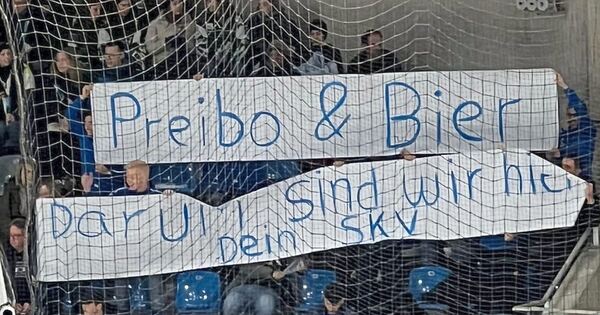 Preibo & Bier
Darum sind wir hier
Dein SKV